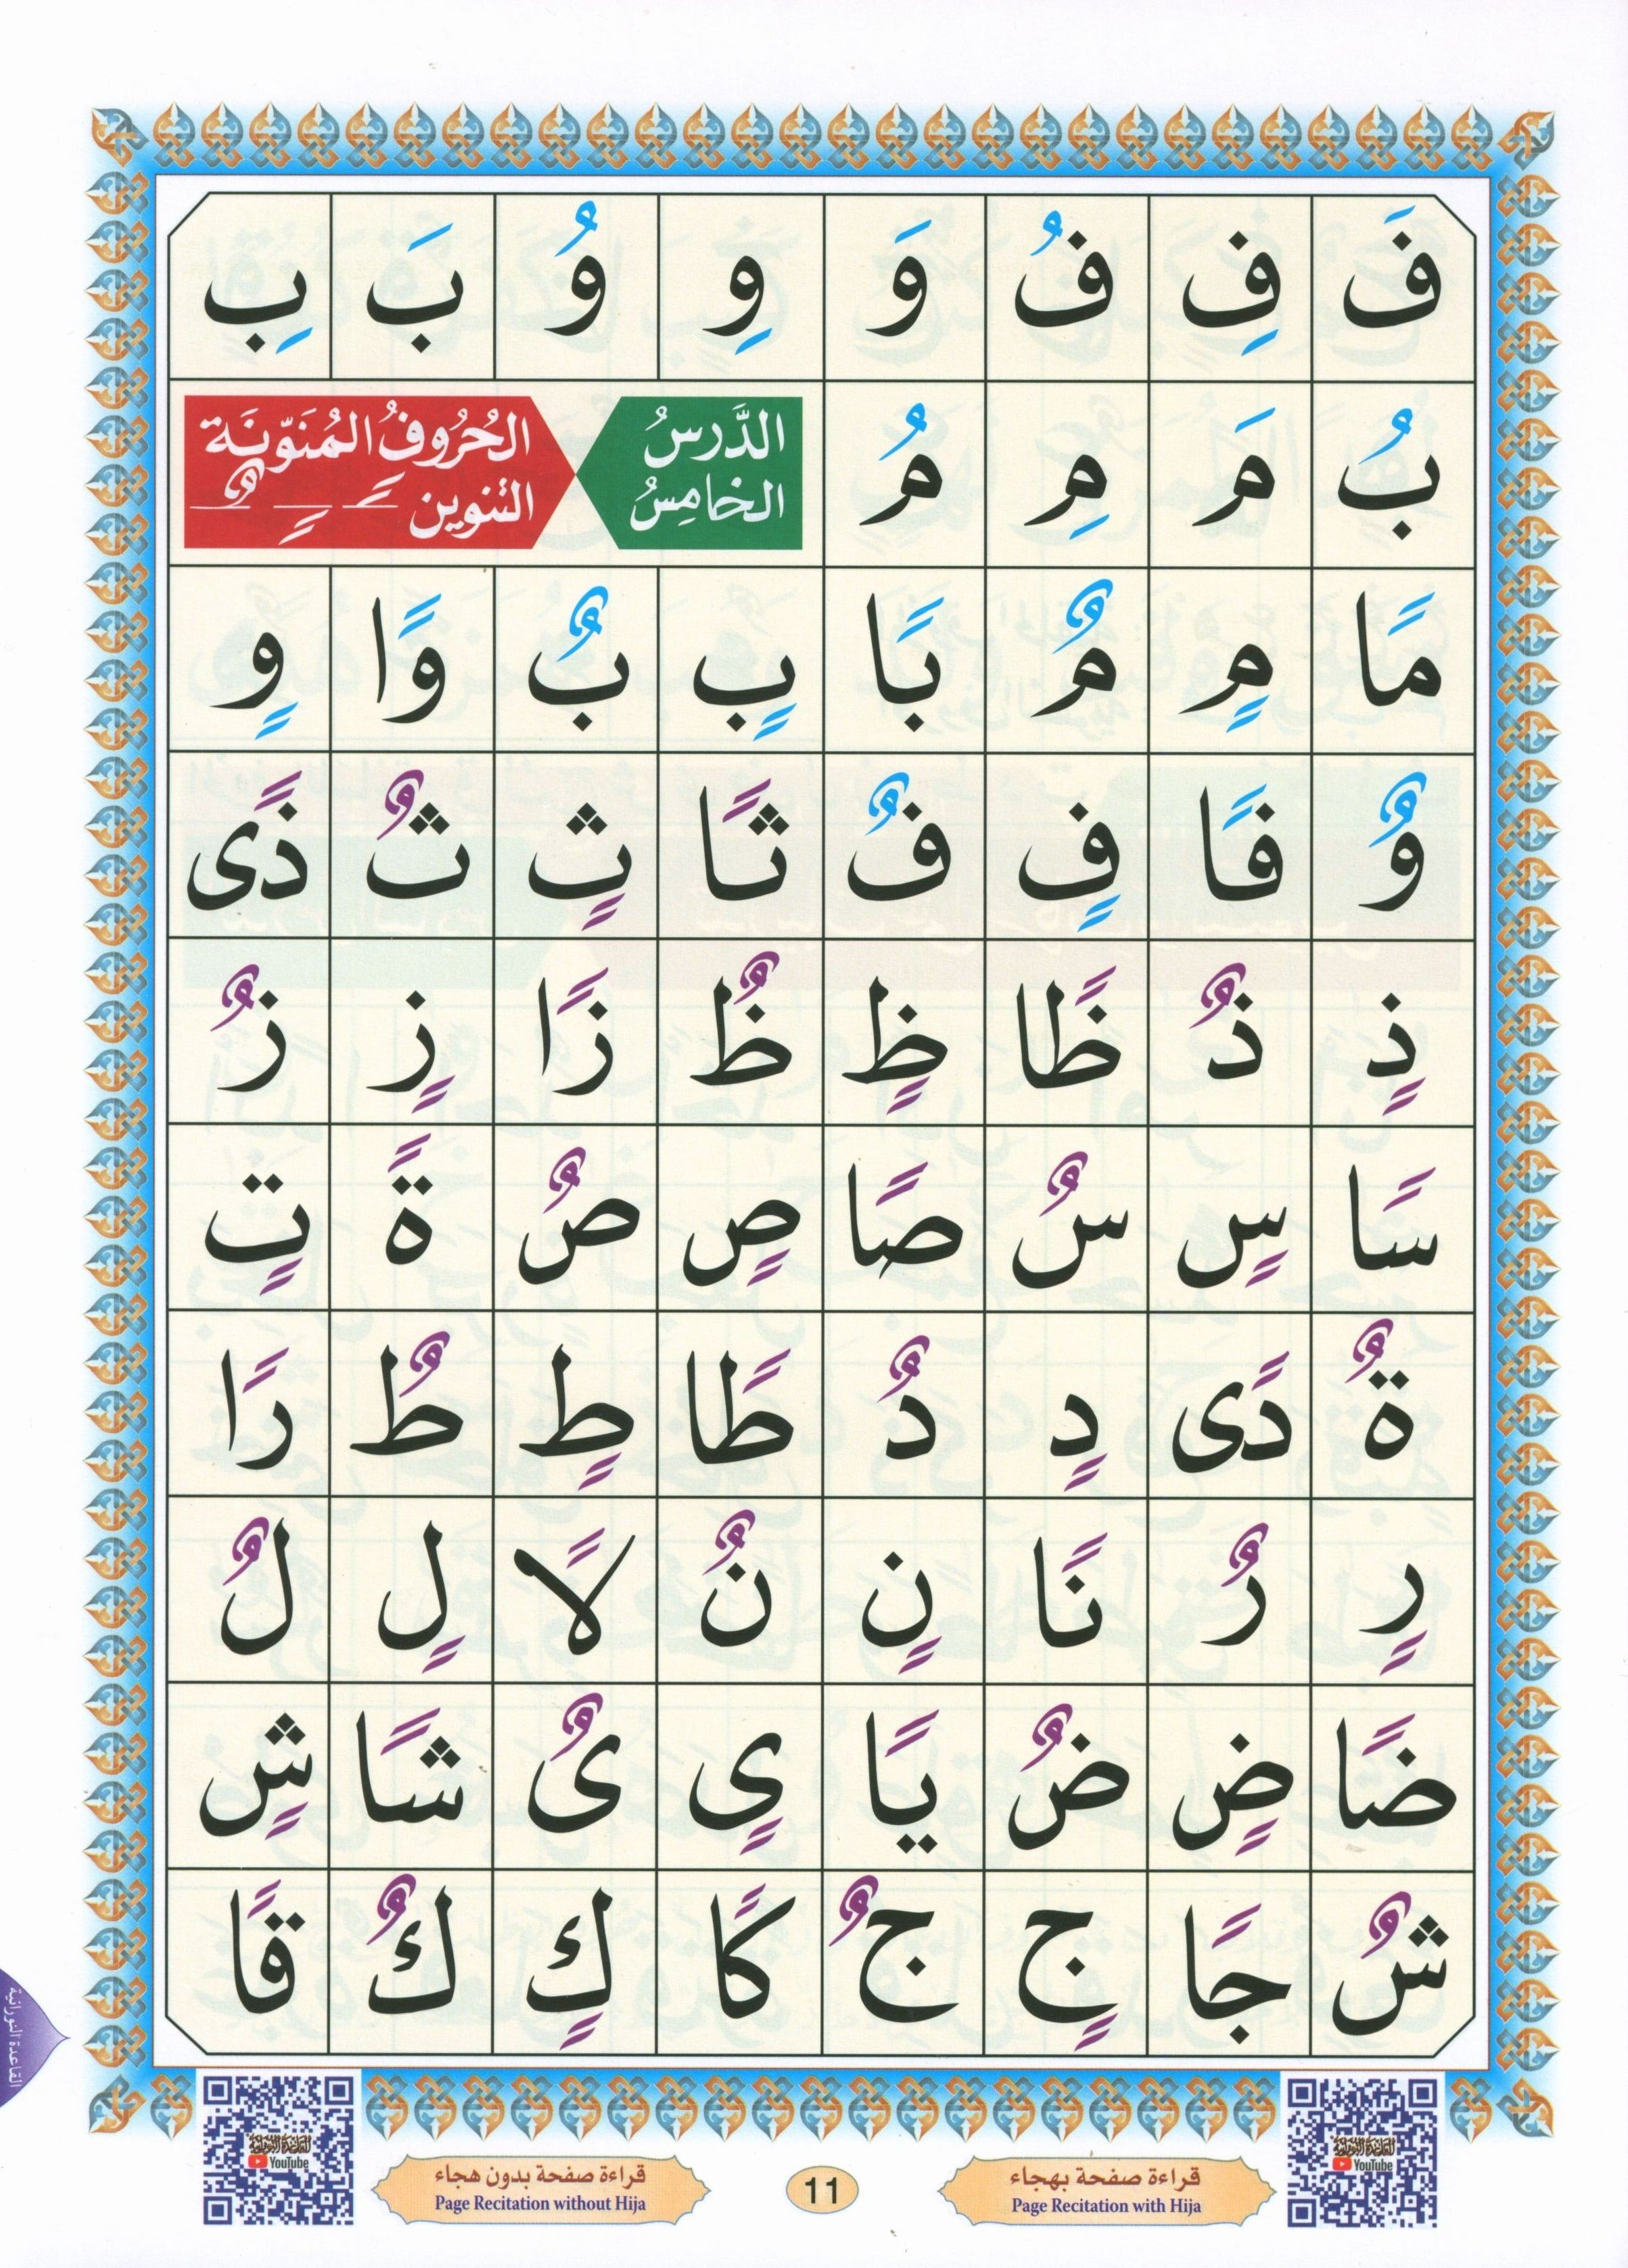 فَ فِ فُ وَ وِ وُ بَ بِ
بُ مَ مِ مُ
الدَّرسُ الخامِسُ
الحُرُوفُ المُنَوّنَة
التنوين ـًـ ـٍـ ـٌـ
مًا مٍ مٌ بًا بٍ بٌ وًا وٍ
وٌ فًا فٍ فٌ ثًا ثٍ ثٌ ذًى
ذٍ ذٌ ظًا ظٍ ظٌ زًا زٍ زٌ
سًا سٍ سٌ صًا صٍ صٌ ةً تٍ
ةٌ دًى دٍ دٌ طًا طٍ طٌ رًا
رٍ رٌ نًا نٍ نٌ لًا لٍ لٌ
ضًا ضٍ ضٌ يًا ىٍ ىٌ شًا شٍ
شٌ جًا جٍ جٌ كًا كٍ كٌ قًا
القاعدة النورانية
القاعدة النورانية
YouTube
القاعدة النورانية
YouTube
قراءة صفحة بهجاء
Page Recitation with Hija
11
قراءة صفحة بدون هجاء
Page Recitation without Hija